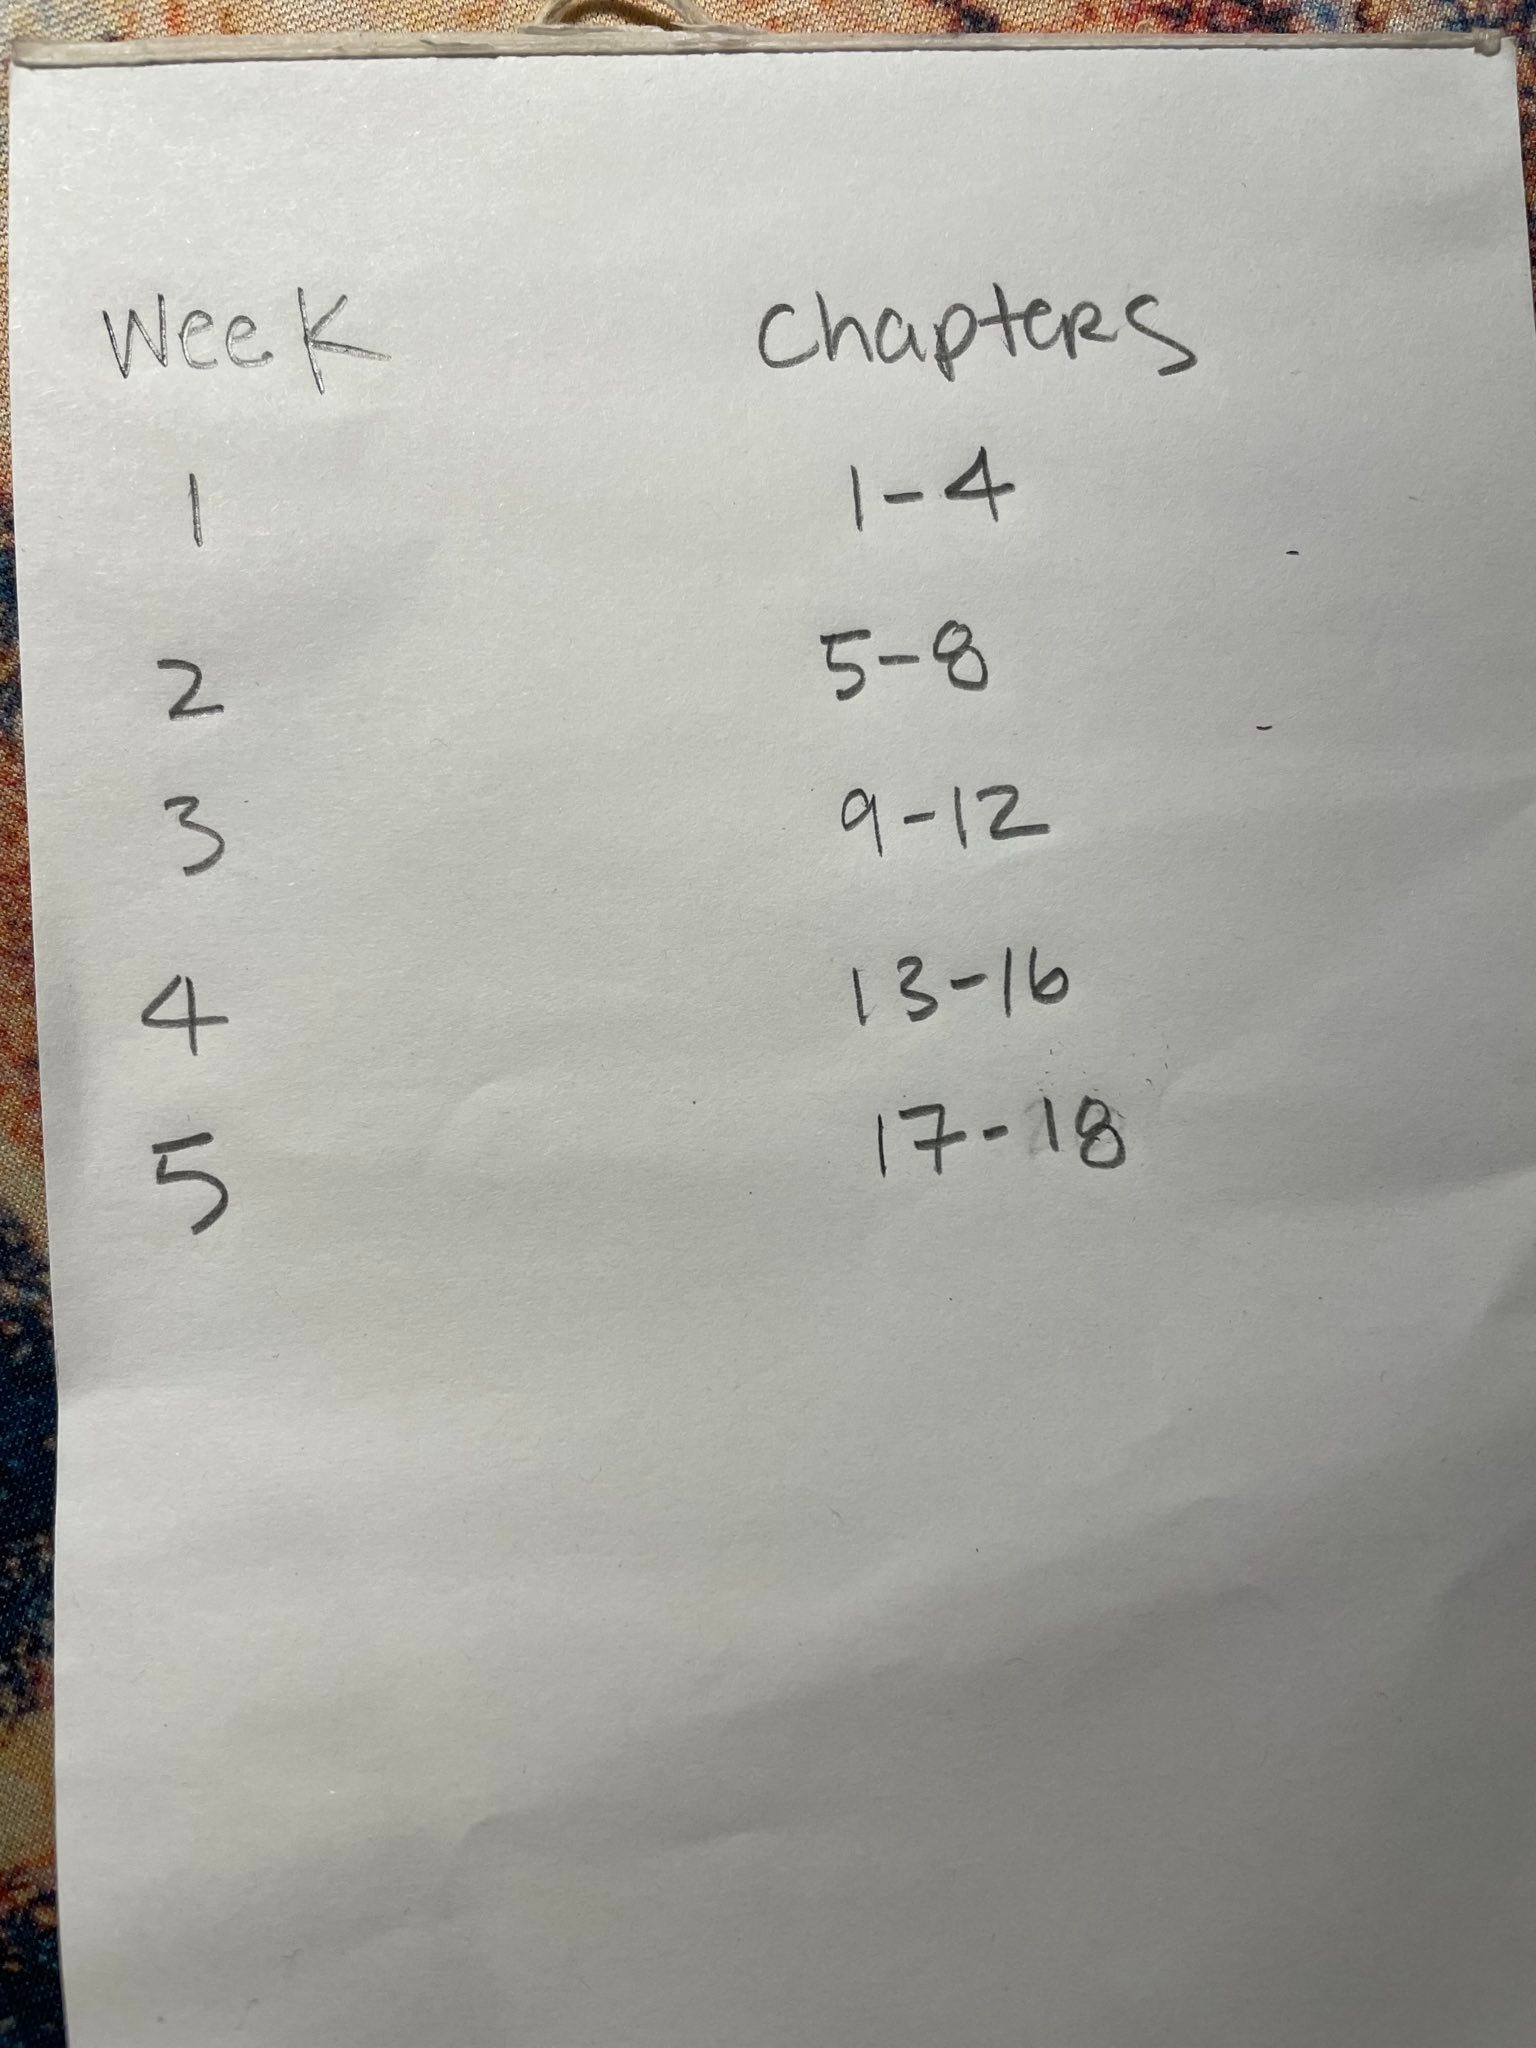 Week Chapters
1 1-4
2 5-8
3 9-12
4 13-16
5 17-18